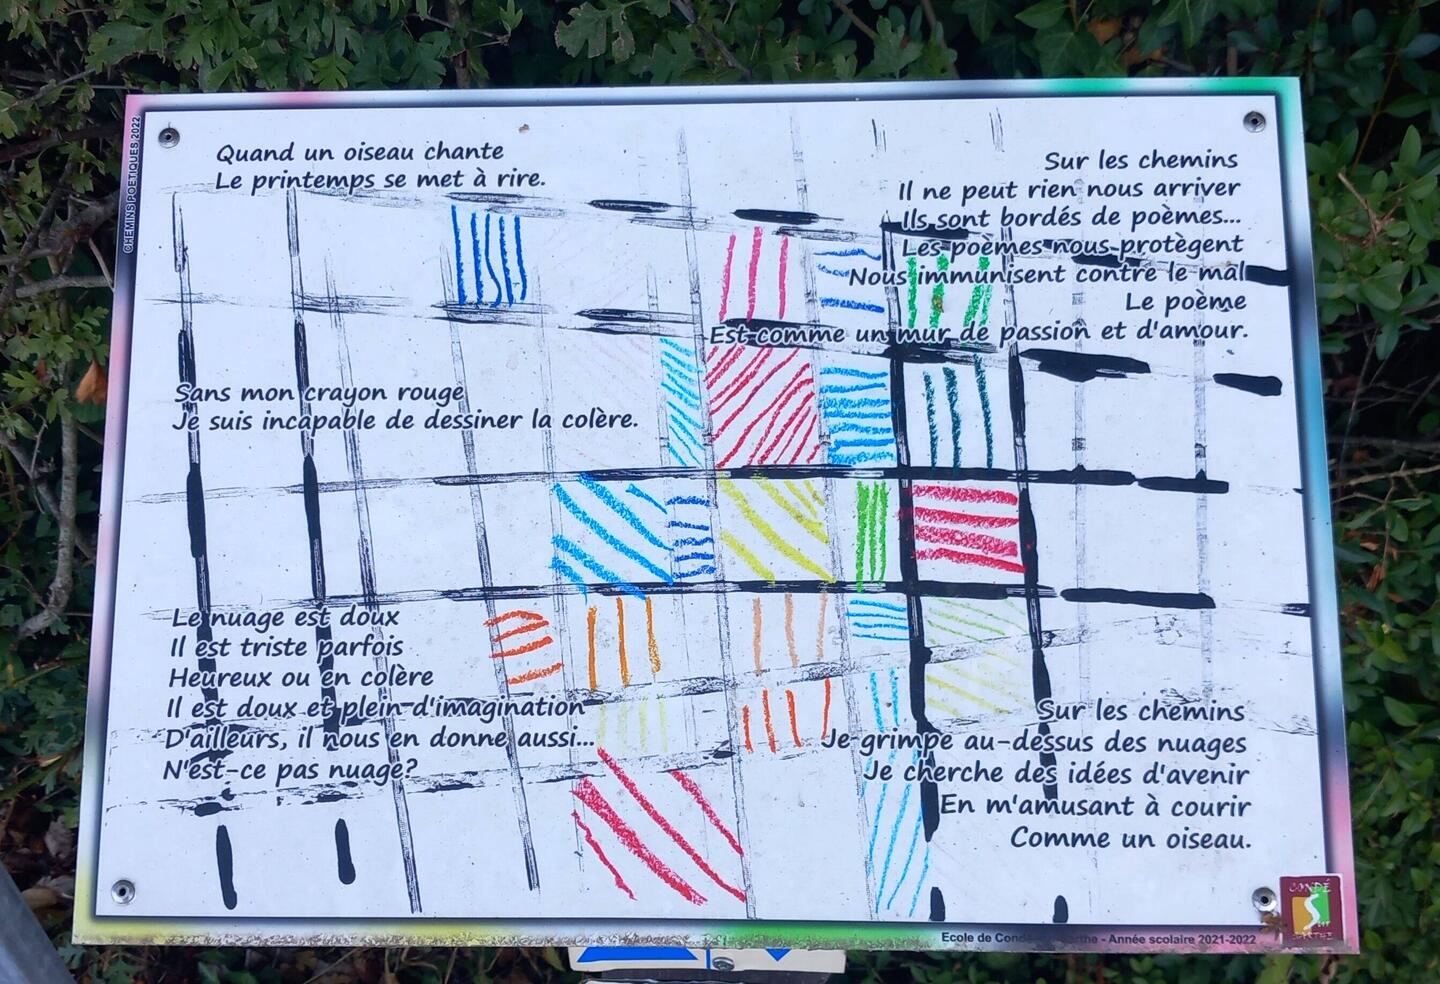 CHEMINS POETIQUES 2022
Quand un oiseau chante
Le printemps se met à rire.
Sur les chemins
Il ne peut rien nous arriver
Ils sont bordés de poèmes...
Les poèmes nous protègent
Nous immunisent contre le mal
Le poème
Est comme un mur de passion et d'amour.
Sans mon crayon rouge
Je suis incapable de dessiner la colère.
Le nuage est doux
Il est triste parfois
Heureux ou en colère
Il est doux et plein d'imagination
D'ailleurs, il nous en donne aussi...
N'est-ce pas nuage?
Sur les chemins
Je grimpe au-dessus des nuages
Je cherche des idées d'avenir
En m'amusant à courir
Comme un oiseau.
Ecole de Condé - Année scolaire 2021-2022
CONDÉ